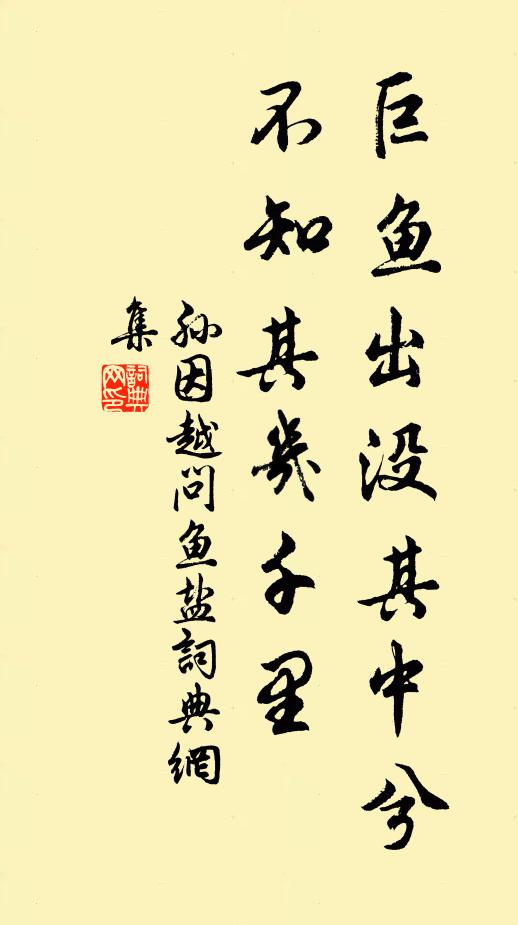 巨鱼出没其中兮
不知其幾千里
孙因越问鱼盐詞典網
集
詞典
网印